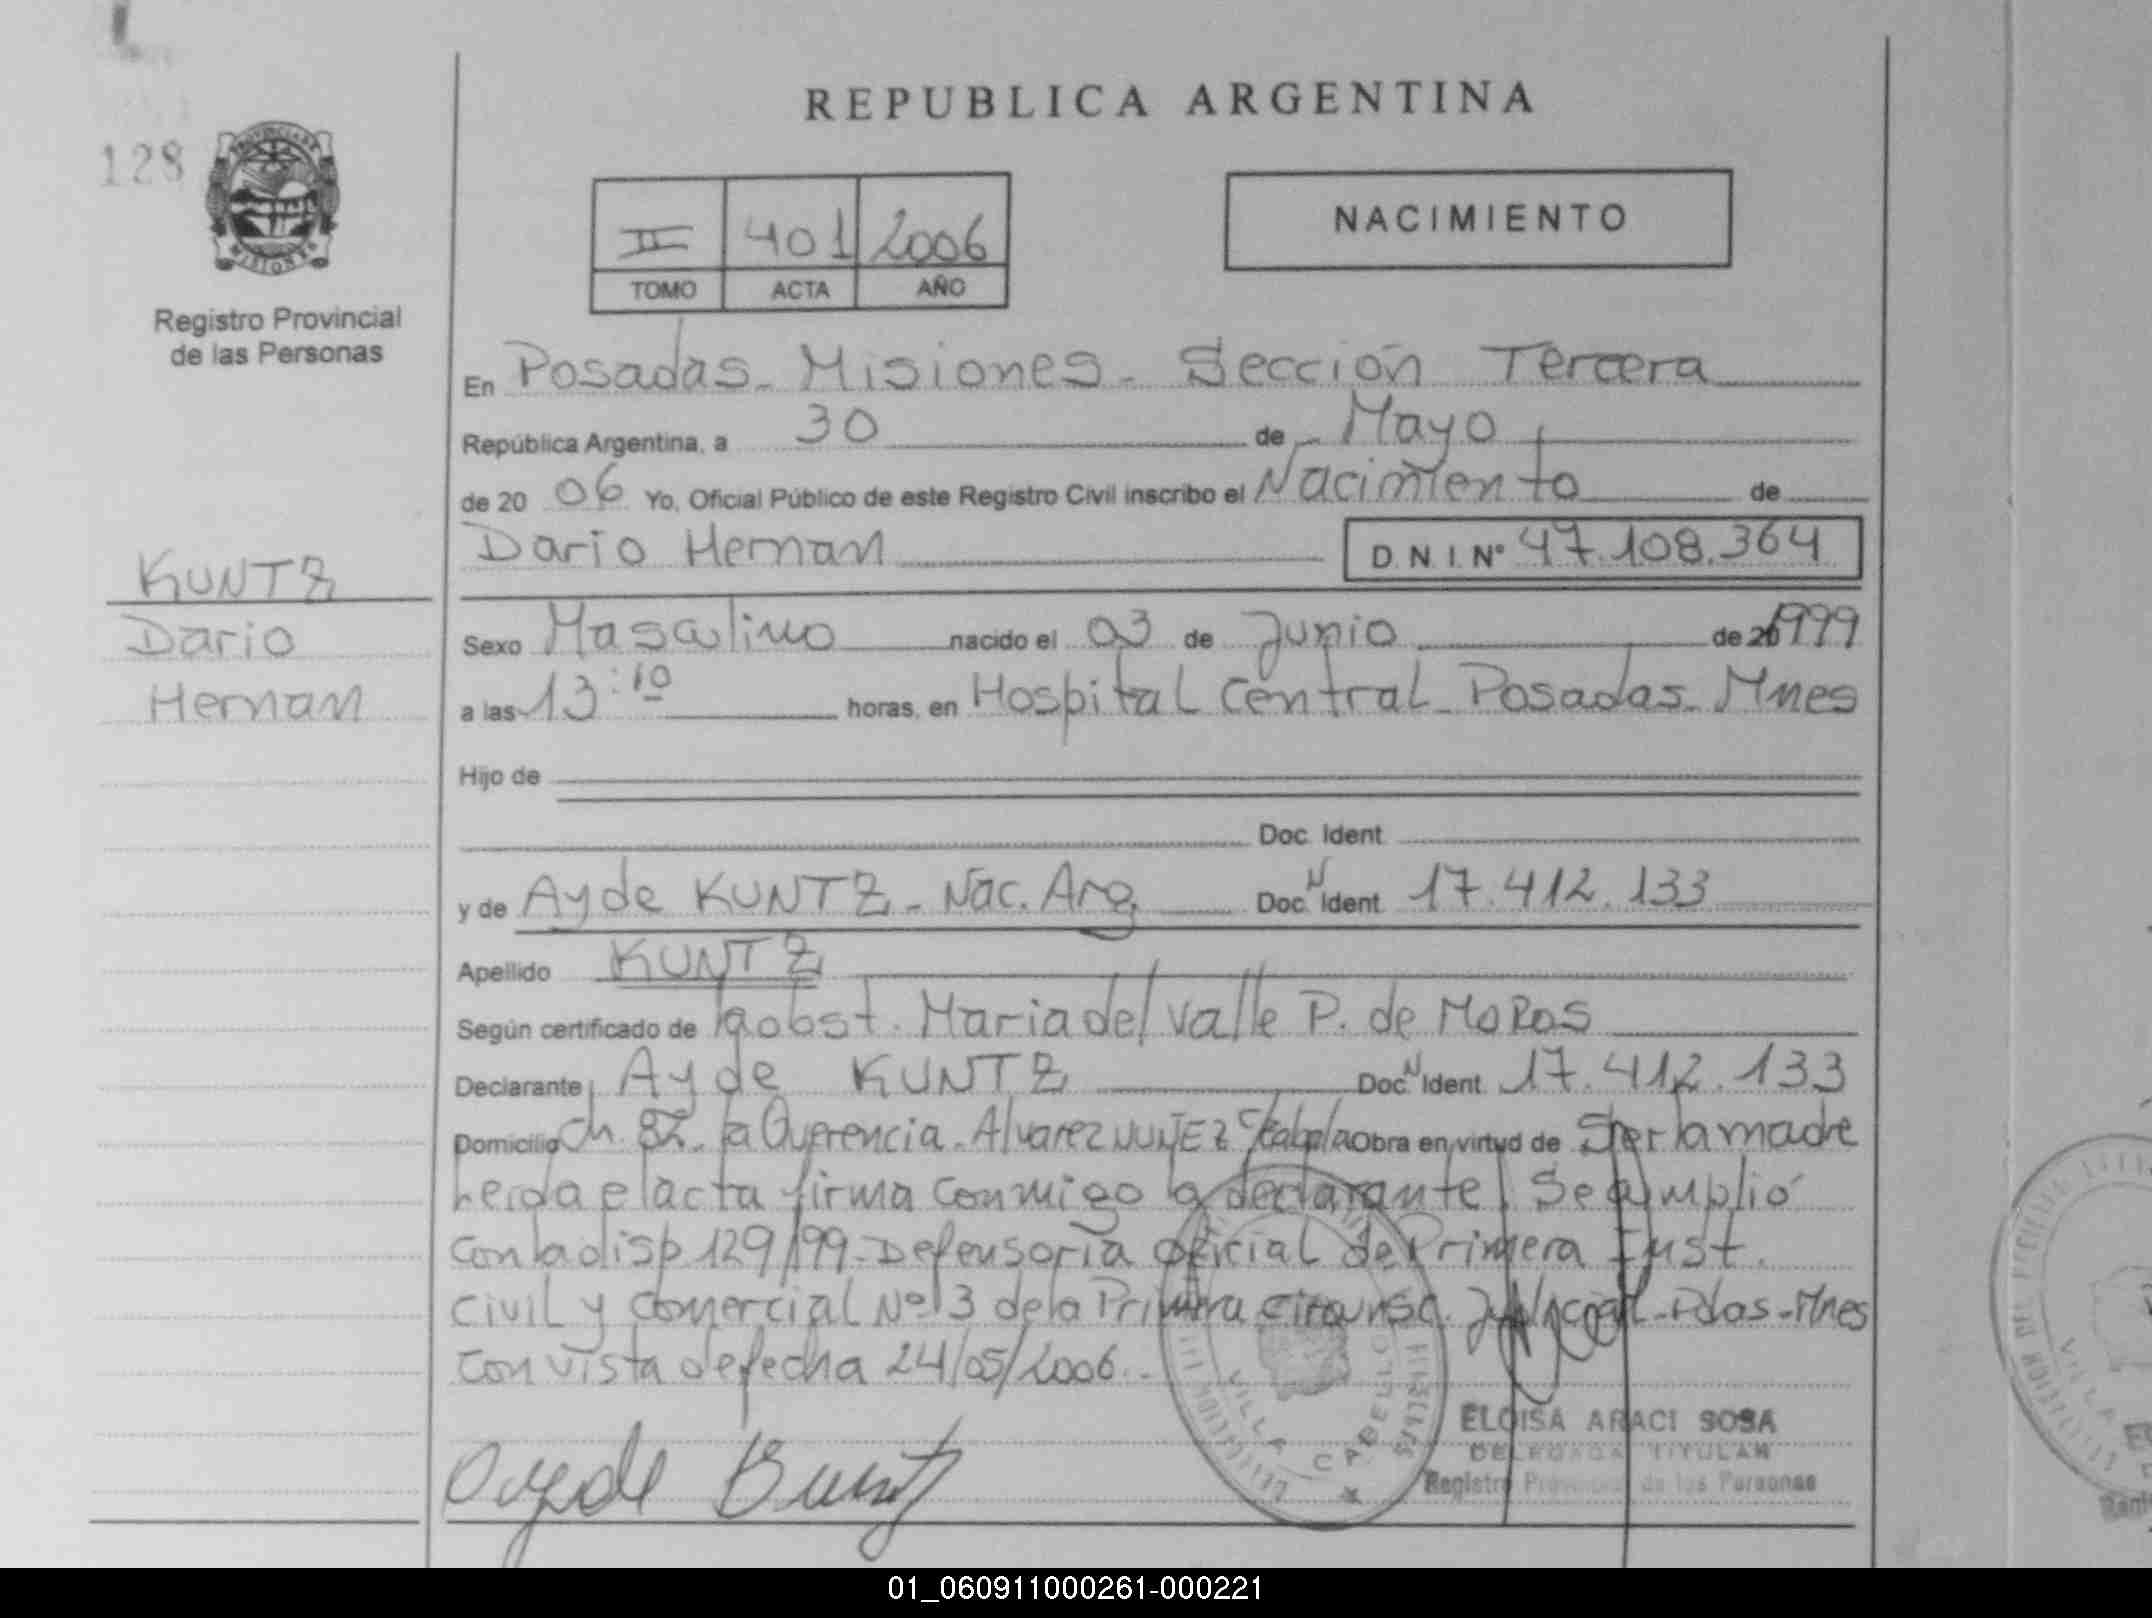 REPUBLICA ARGENTINA
128
PROVINCIA DE
MISIONES
II 401 2006
TOMO ACTA AÑO
NACIMIENTO
Registro Provincial
de las Personas
En Posadas - Misiones - Sección Tercera
República Argentina, a 30 de Mayo
de 20 06 Yo, Oficial Público de este Registro Civil inscribo el Nacimiento de
Dario Hernan D.N.I. N° 47.108.364
KUNTZ
Dario
Hernan
Sexo Masculino nacido el 03 de Junio de 1999
a las 13:10 horas, en Hospital Central - Posadas - Mnes
Hijo de
Doc. Ident.
y de Ayde KUNTZ - Nac. Arg. Doc. N Ident. 17.412.133
Apellido KUNTZ
Según certificado de obst. Maria del Valle P. de MoRos
Declarante Ayde KUNTZ Doc. N Ident. 17.412.133
Domicilio Ch. la Querencia - Alvarez NUÑEZ Obra en virtud de Ser la madre
leida el acta firma conmigo la declarante. Se amplió
con la disp. 129/99 - Defensoria oficial de Primera Inst.
Civil y Comercial Nº 3 de la Primera Circunsc. Judicial - Pdas - Mnes
con vista de fecha 24/05/2006.-
VILLA CABELLO
Ayde Kuntz
ELOISA ARACI SOSA
DELEGADA TITULAR
Registro Provincial de las Personas
01_060911000261-000221